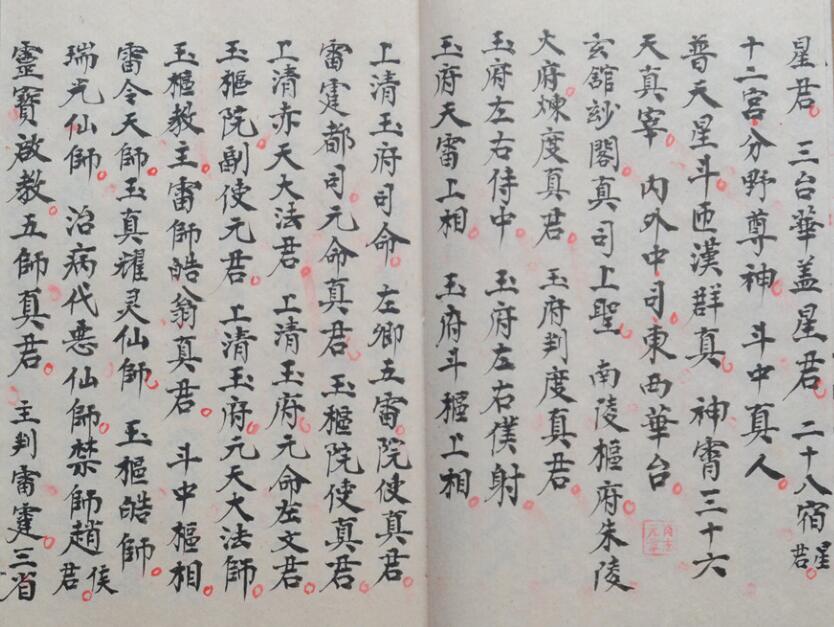 星君 三台華盖星君 二十八宿星君
十二宫分野尊神 斗中真人
普天星斗 河漢群真 神霄三十六
天真宰 内外中司 東西華台
玄舘玅閣真司上聖 南陵樞府朱陵
大府煉度真君 玉府判度真君
玉府左右侍中 玉府左右僕射
玉府天雷上相 玉府斗樞上相
上清玉府司命 左卿五雷院使真君
雷霆都司元命真君 玉樞院使真君
上清赤天大法君 上清玉府元命左文君
玉樞院副使元君 上清玉府元天大法師
玉樞教主雷師皓翁真君 斗中樞相
雷令天師 玉真耀灵仙師 玉樞皓師
瑞光仙師 治病代恶仙師 禁師趙侯君
靈寶啟教五師真君 主判雷霆三省